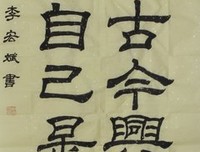 古今興
自己是
李宏斌書